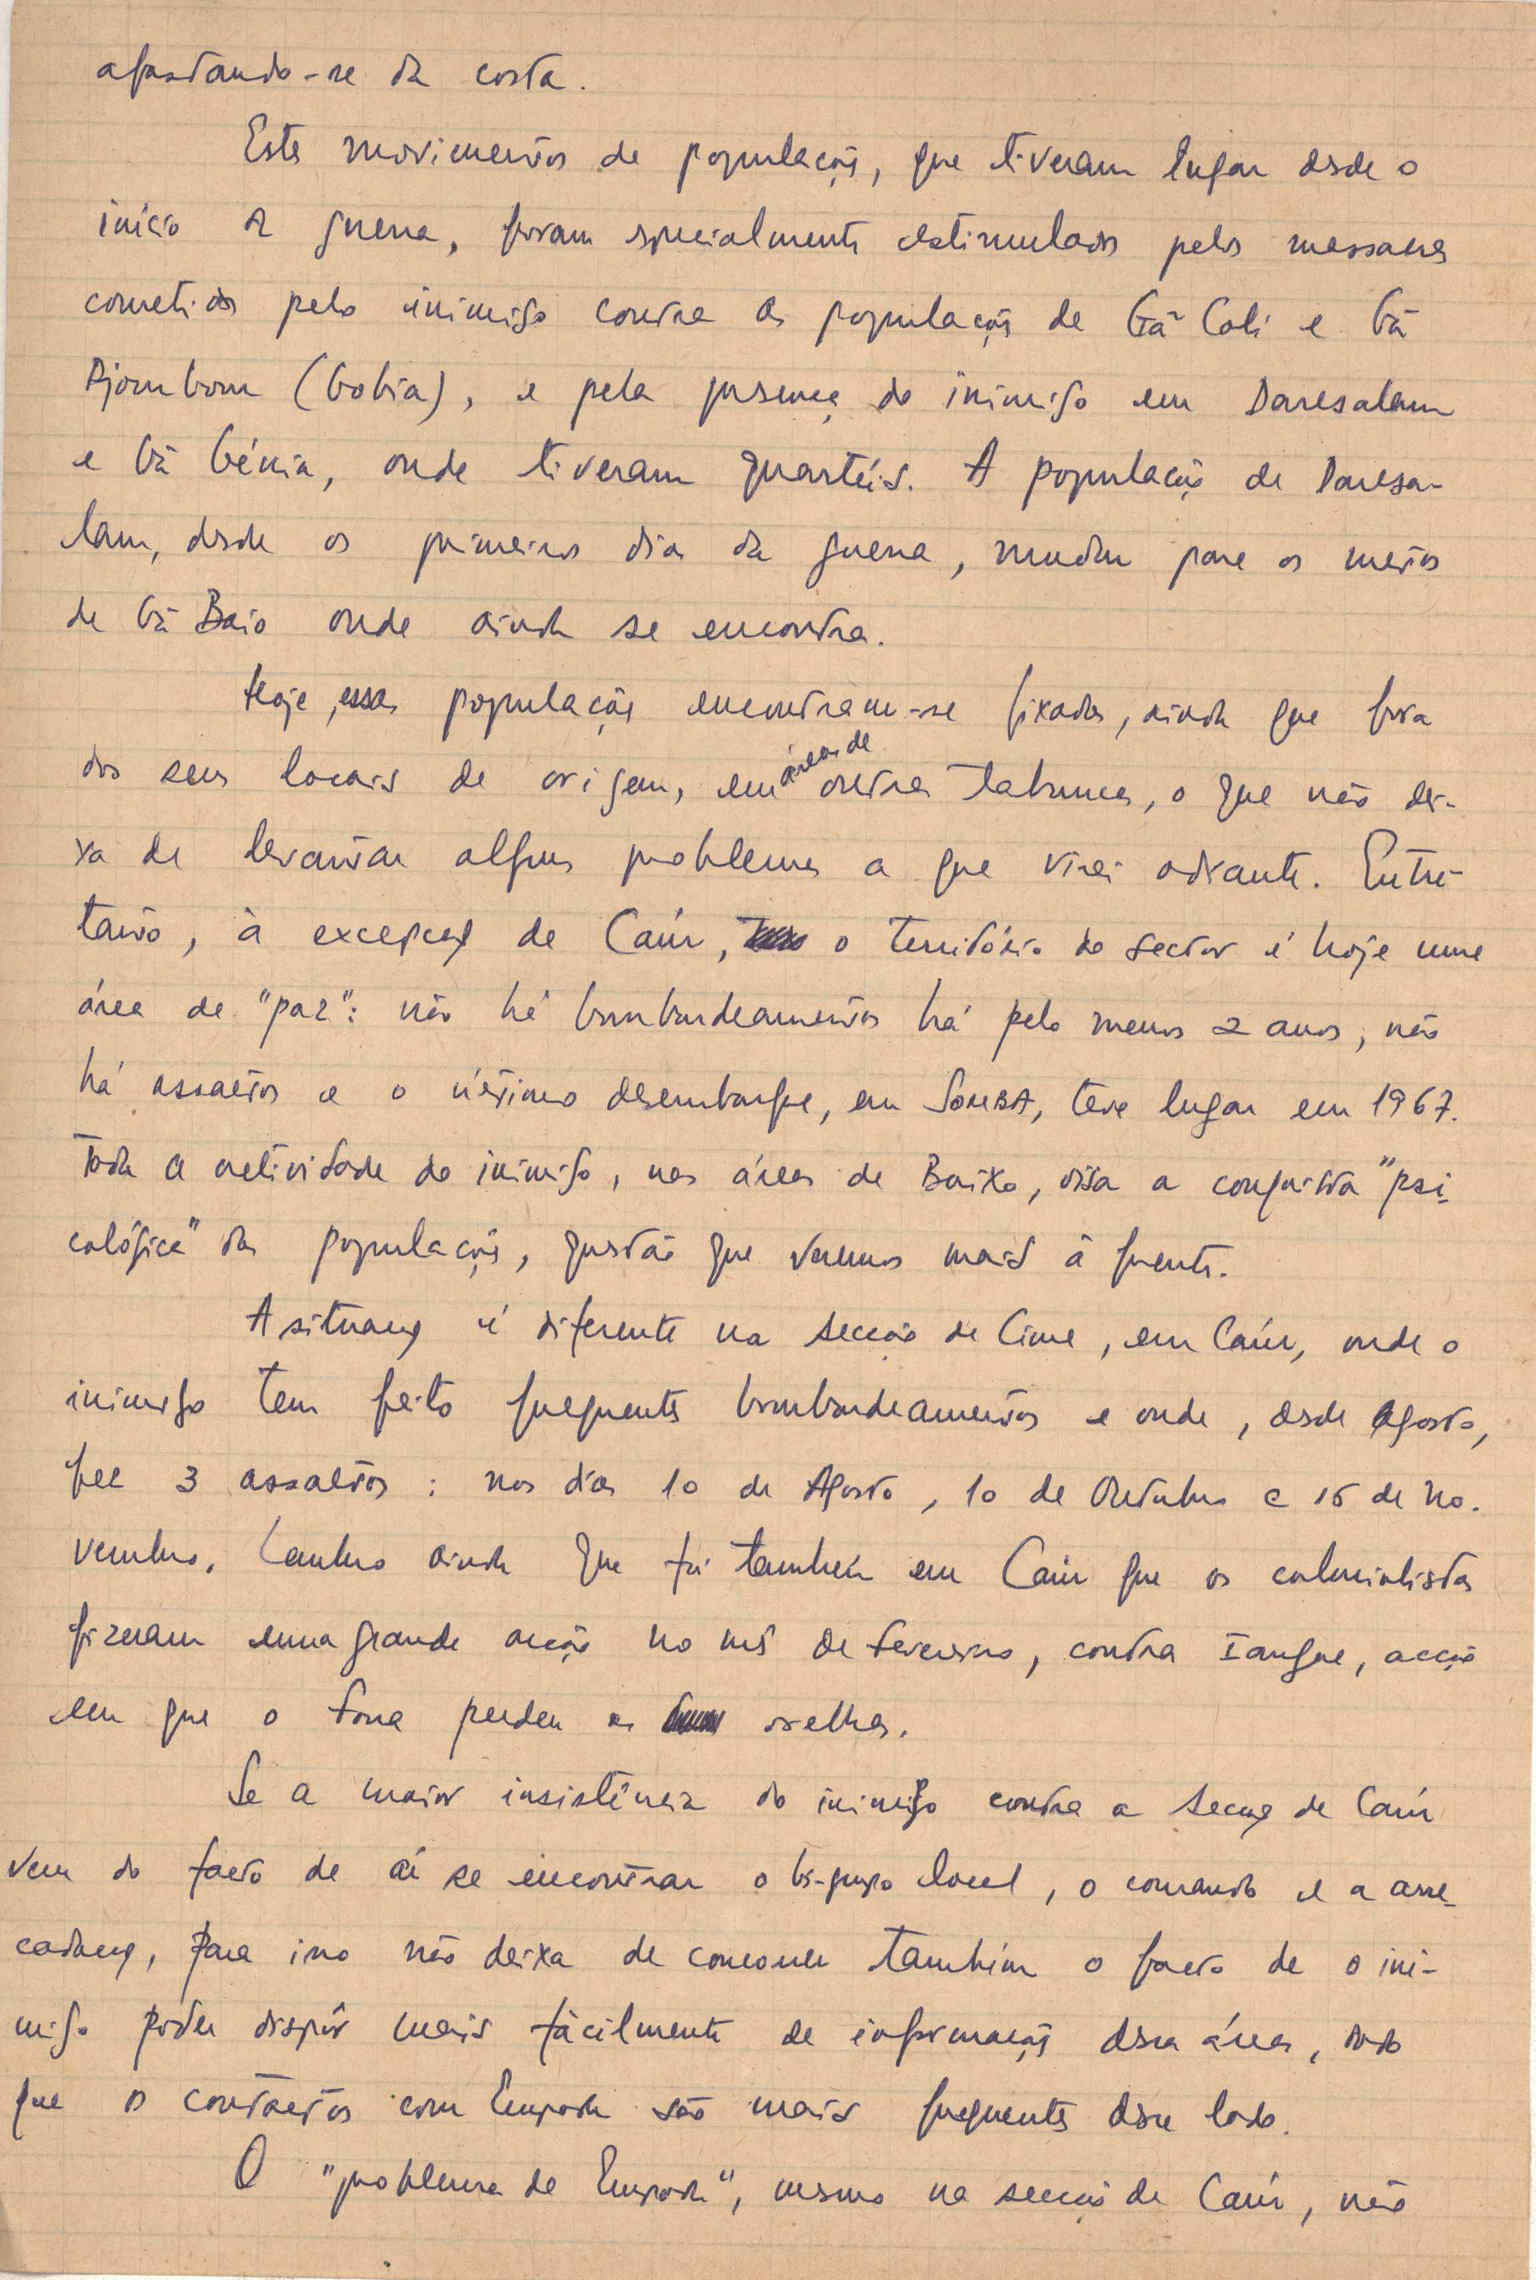 afastando-se da costa.
Estes movimentos de população, que tiveram lugar desde o
início da guerra, foram especialmente estimulados pelos massacres
cometidos pelo inimigo contra as populações de Gã Coli e Gã
Djombom (Gobia), e pela presença do inimigo em Daresalam
e Gã Génia, onde tiveram quartéis. A população de Daresa-
lam, desde os primeiros dias da guerra, mudou para os matos
de Gã Baio onde ainda se encontra.
Hoje, essas populações encontram-se fixadas, ainda que fora
dos seus locais de origem, em áreas de outras tabancas, o que não dei-
xa de levantar alguns problemas a que virei adiante. Entre-
tanto, à excepção de Caúr, o território do sector é hoje uma
área de "paz": não há bombardeamentos há pelo menos 2 anos, não
há assaltos e o último desembarque, em SOMBA, teve lugar em 1967.
Toda a actividade do inimigo, nas áreas de Baixo, visa a conquista "psi-
cológica" das populações, questão que veremos mais à frente.
A situação é diferente na secção de Cima, em Caúr, onde o
inimigo tem feito frequentes bombardeamentos e onde, desde Agosto,
fez 3 assaltos: nos dias 10 de Agosto, 10 de Outubro e 15 de No-
vembro. Lembro ainda que foi também em Caúr que os colonialistas
fizeram uma grande acção no mês de Fevereiro, contra Iangue, acção
em que o perdeu as orelhas.
Se a maior insistência do inimigo contra a secção de Caúr
vem do facto de aí se encontrar o bi-grupo local, o comando e a arre-
cadação, para isso não deixa de concorrer também o facto de o ini-
migo poder dispôr mais fàcilmente de informações dessa área, dado
que os contactos com Empada são mais frequentes desse lado.
O "problema de Empada", mesmo na secção de Caúr, não